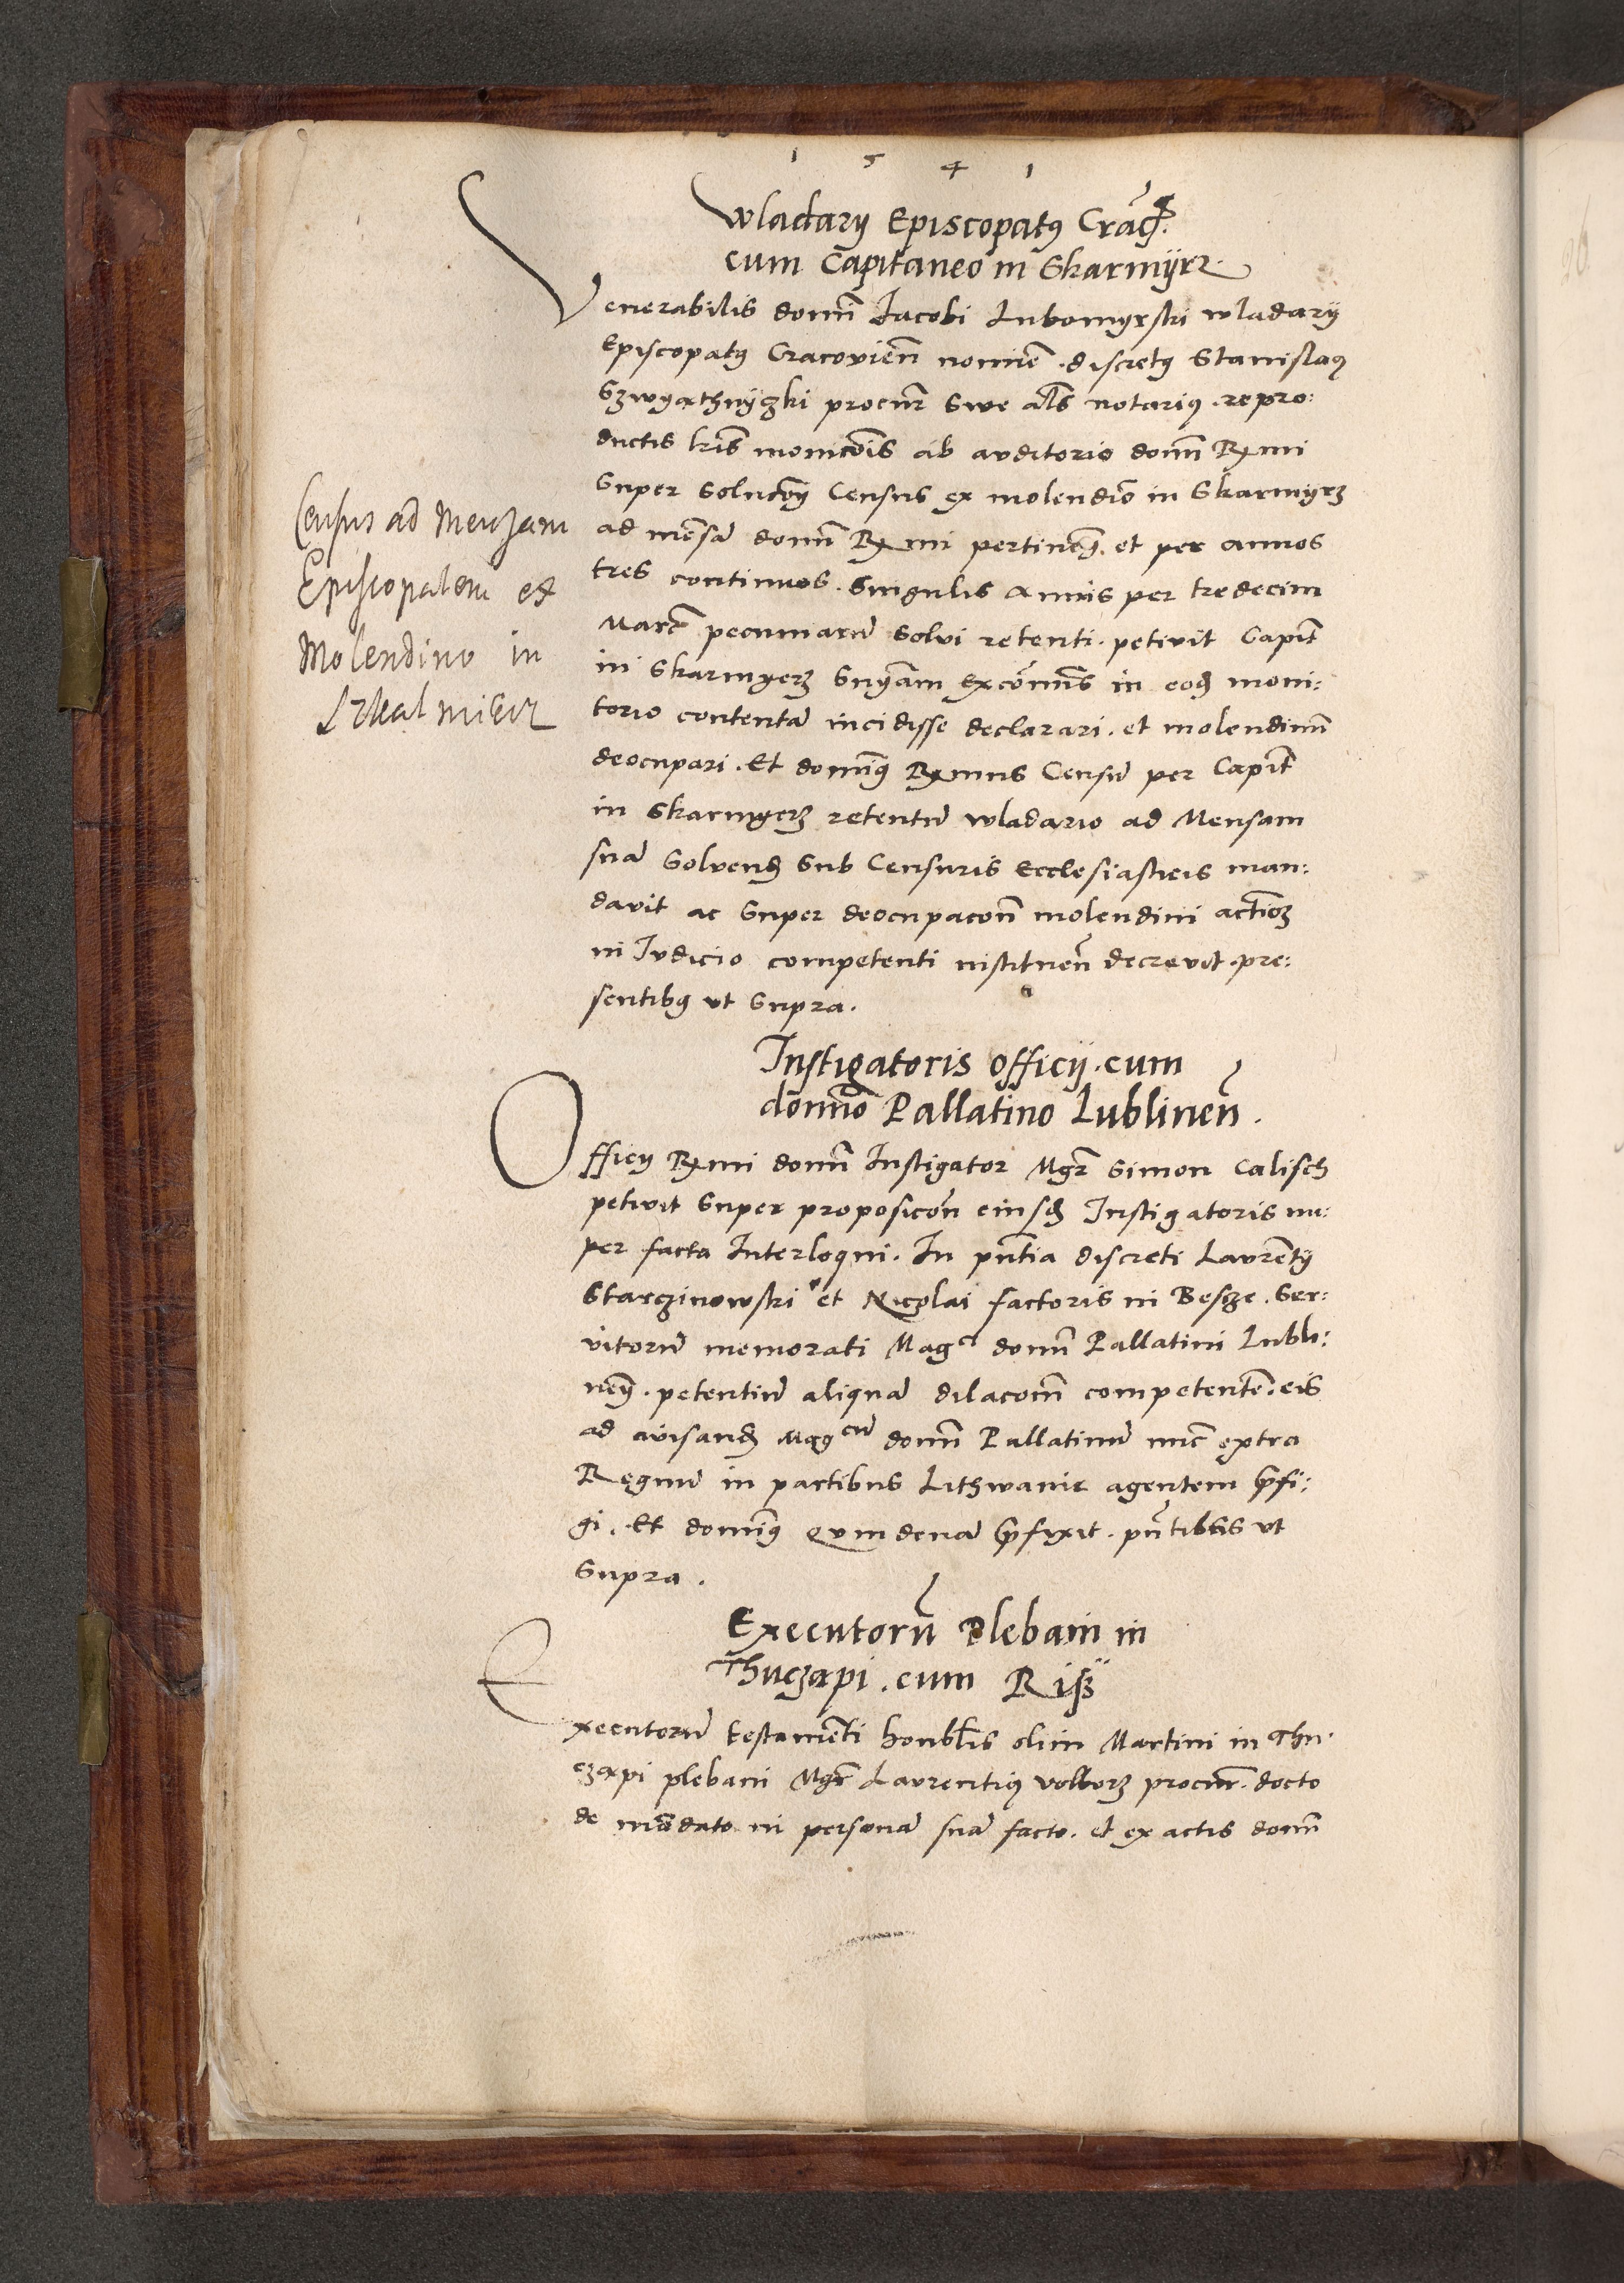 1 5 4 1
Wladarij Episcopatus Crac̄
cum Capitaneo in Skarmyrz
Venerabilis domi Iacobi Lubomyrski wladarij
Episcopatus Cracovien̄ nomine . discretus Stanislaus
Szwyathnyczki procur̄ sive als̄ notarius . repro:
ductis lr̄is monicois ab auditorio domi Rx̄mi
super solucoij Census ex molendino in Skarmyrz
ad mēsā domi Rx̄mi pertineñ. et per annos
tres continuos . singulis annis per tredecim
Marc̄ pecuniarū solvi retenti . petivit Capit̄
in Skarmyerz Sn̄yam Excōmis in eod̄ moni:
torio contentā incidisse declarari . et molendinū
deocupari . Et dominus Rx̄mus Censū per Capit̄
in Skarmyerz retentū wladario ad Mensam
suā solvend̄ sub Censuris Ecclesiasticis man:
davit ac super deocupacoñ molendini actioē
in Iudicio competenti instituen̄ decrevit . pre:
sentibus ut supra .
Census ad Menzam
Episcopalem ex
Molendino in
Skalmierz
Instigatoris officij . cum
domino Pallatino Lublinen̄ .
Officij Rx̄mi domi Instigator Mgr̄ Simon Calisch
petivit super proposicoñ eiusd̄ Instigatoris nu:
per facta Interloqui . In pn̄tia discreti Laurētij
Starczinowski et Nicolai factoris in Besze . Ser:
vitorū memorati Magci domi Pallatini Lubli:
neñ . petentiū aliquā dilacoñ competentē . eis
ad avisand̄ Magcū domi Pallatinū nūc extra
Regnū in partibus Lithwanie agentem p̄fi:
gi . Et dominus quindenā p̄fixit . pn̄tibus ut
supra .
Executorū Plebani in
Thuczapi . cum
Executorū testamēti honbl̄is olim Martini in Thu
czapi plebani Mgr̄ Laurentius Volborz procur̄ . docto
de mādato in personā suā facto . et ex actis domi